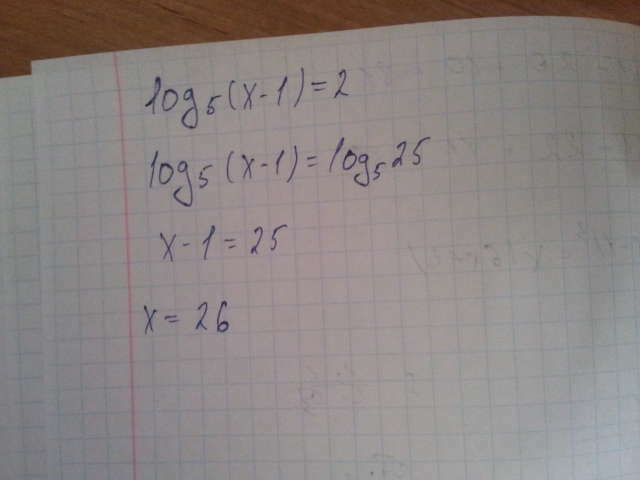 log₅(x-1)=2
log₅(x-1)=log₅25
x-1=25
x=26